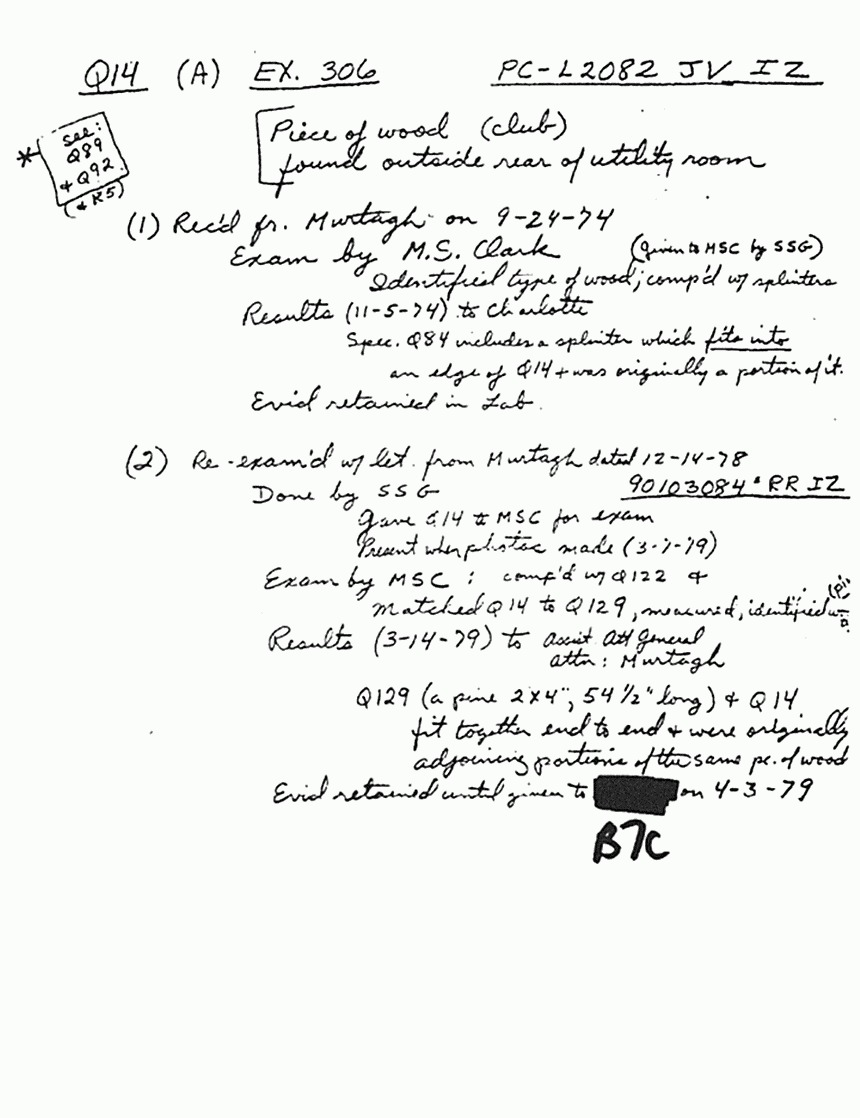 Q14 (A) EX. 306 PC-L2082 JV IZ
* see:
Q89
+ Q92
(+ K5)
Piece of wood (club)
found outside rear of utility room
(1) Rec'd fr. Murtagh on 9-24-74
Exam by M.S. Clark (given to MSC by SSG)
Identified type of wood; comp'd w/ splinters
Results (11-5-74) to Charlotte
Spec. Q84 includes a splinter which fits into
an edge of Q14 + was originally a portion of it.
Evid retained in Lab.
(2) Re-exam'd w/ let. from Murtagh dated 12-14-78
Done by SSG 90103084 RR IZ
Gave Q14 to MSC for exam
Present when photos made (3-7-79)
Exam by MSC: comp'd w/ Q122 +
matched Q14 to Q129, measured, identified
Results (3-14-79) to Assist. Att General
attn: Murtagh
Q129 (a pine 2x4", 54 1/2" long) + Q14
fit together end to end + were originally
adjoining portions of the same pc. of wood
Evid retained until given to on 4-3-79
B7C